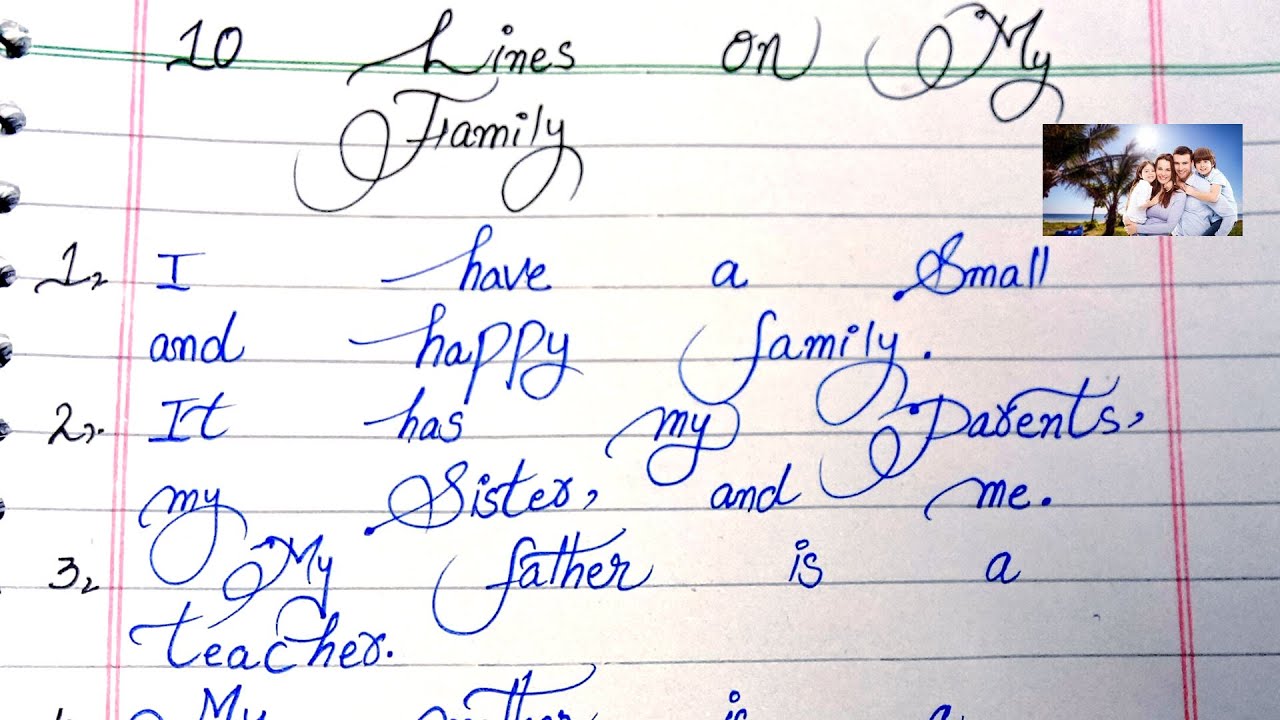 10 Lines on My
Family
1, I have a Small
and happy family.
2, It has my Parents,
my Sister, and me.
3, My father is a
teacher.
My mother is a